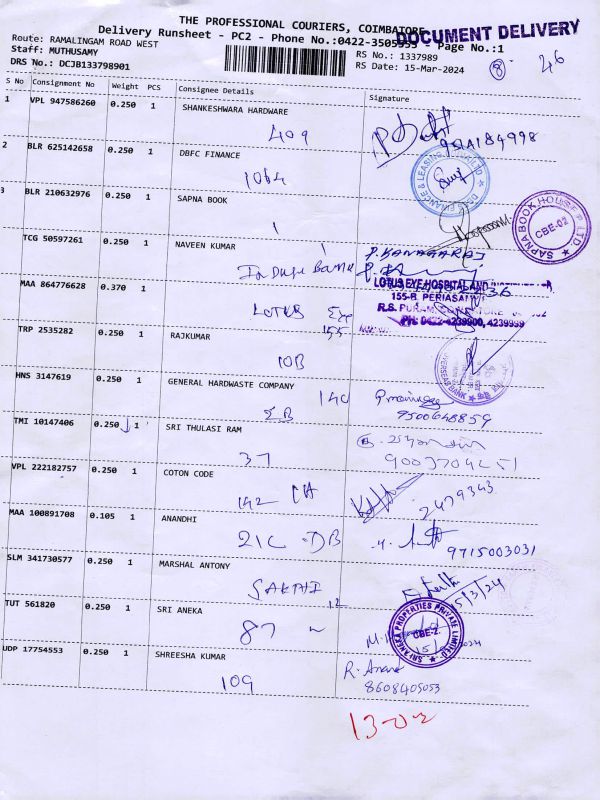 THE PROFESSIONAL COURIERS, COIMBATORE
Delivery Runsheet - PC2 - Phone No.:0422-3505555 Page No.:1
DOCUMENT DELIVERY
Route: RAMALINGAM ROAD WEST
RS No.: 1337989
Staff: MUTHUSAMY
RS Date: 15-Mar-2024
DRS No.: DCJB133798901
8 46
S No Consignment No Weight PCS Consignee Details Signature
1 VPL 947586260 0.250 1 SHANKESHWARA HARDWARE
409
2 BLR 625142658 0.250 1 DBFC FINANCE
1064
3 BLR 210632976 0.250 1 SAPNA BOOK
SAPNA BOOK HOUSE P LTD. CBE-02
TCG 50597261 0.250 1 NAVEEN KUMAR
P. KANAGARAJ
MAA 864776628 0.370 1
LOTUS Eye
155
LOTUS EYE HOSPITAL AND
155-B. PERIASAMY
R.S. PURAM
PH: 0422-4239900, 4239999
TRP 2535282 0.250 1 RAJKUMAR
10B
OVERSEAS BANK
HNS 3147619 0.250 1 GENERAL HARDWASTE COMPANY
140
EB
9500648859
TMI 10147406 0.250 1 SRI THULASI RAM
37
VPL 222182757 0.250 1 COTON CODE
142
2479343
MAA 100891708 0.105 1 ANANDHI
21C DB
9715003031
SLM 341730577 0.250 1 MARSHAL ANTONY
SAKTHI
12
15/3/24
TUT 561820 0.250 1 SRI ANEKA
87
SRI ANEKA PROPERTIES PRIVATE LIMITED CBE-2.
UDP 17754553 0.250 1 SHREESHA KUMAR
109
R. Anand
8608405053
13-02